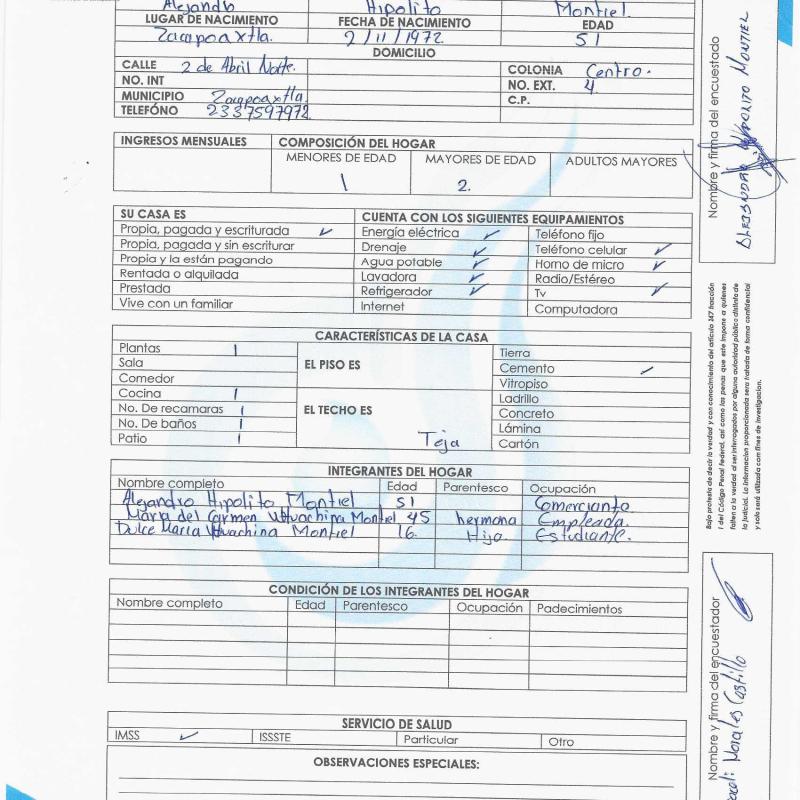 Alejandro Hipolito Montiel
LUGAR DE NACIMIENTO FECHA DE NACIMIENTO EDAD
Zacapoaxtla. 2/11/1972 51
DOMICILIO
CALLE 2 de Abril Norte. COLONIA Centro.
NO. INT NO. EXT. 4
MUNICIPIO Zacapoaxtla. C.P.
TELEFÓNO 2337597972
INGRESOS MENSUALES COMPOSICIÓN DEL HOGAR
MENORES DE EDAD MAYORES DE EDAD ADULTOS MAYORES
1 2.
SU CASA ES CUENTA CON LOS SIGUIENTES EQUIPAMIENTOS
Propia, pagada y escriturada ✓ Energía eléctrica ✓ Teléfono fijo
Propia, pagada y sin escriturar Drenaje ✓ Teléfono celular ✓
Propia y la están pagando Agua potable ✓ Horno de micro ✓
Rentada o alquilada Lavadora ✓ Radio/Estéreo
Prestada Refrigerador ✓ Tv ✓
Vive con un familiar Internet Computadora
CARACTERÍSTICAS DE LA CASA
Plantas 1
Sala
Comedor
Cocina 1
No. De recamaras 1
No. De baños 1
Patio 1
EL PISO ES
Tierra
Cemento ✓
Vitropiso
EL TECHO ES
Teja
Ladrillo
Concreto
Lámina
Cartón
INTEGRANTES DEL HOGAR
Nombre completo Edad Parentesco Ocupación
Alejandro Hipolito Montiel 51 Comerciante
Maria del Carmen Montiel 45 hermana Empleada.
Dulce Maria Montiel 16. Hija Estudiante.
CONDICIÓN DE LOS INTEGRANTES DEL HOGAR
Nombre completo Edad Parentesco Ocupación Padecimientos
SERVICIO DE SALUD
IMSS ✓ ISSSTE Particular Otro
OBSERVACIONES ESPECIALES:
Nombre y firma del encuestado
ALEJANDRO HIPOLITO MONTIEL
Bajo protesta de decir la verdad y con conocimiento del artículo 247 fracción
I del Código Penal Federal, así como las penas que este impone a quienes
falten a la verdad al ser interrogados por alguna autoridad pública distinta de
la judicial. La información proporcionada sera tratada de forma confidencial
y solo será utilizada con fines de investigación.
Nombre y firma del encuestador
Morales Castillo